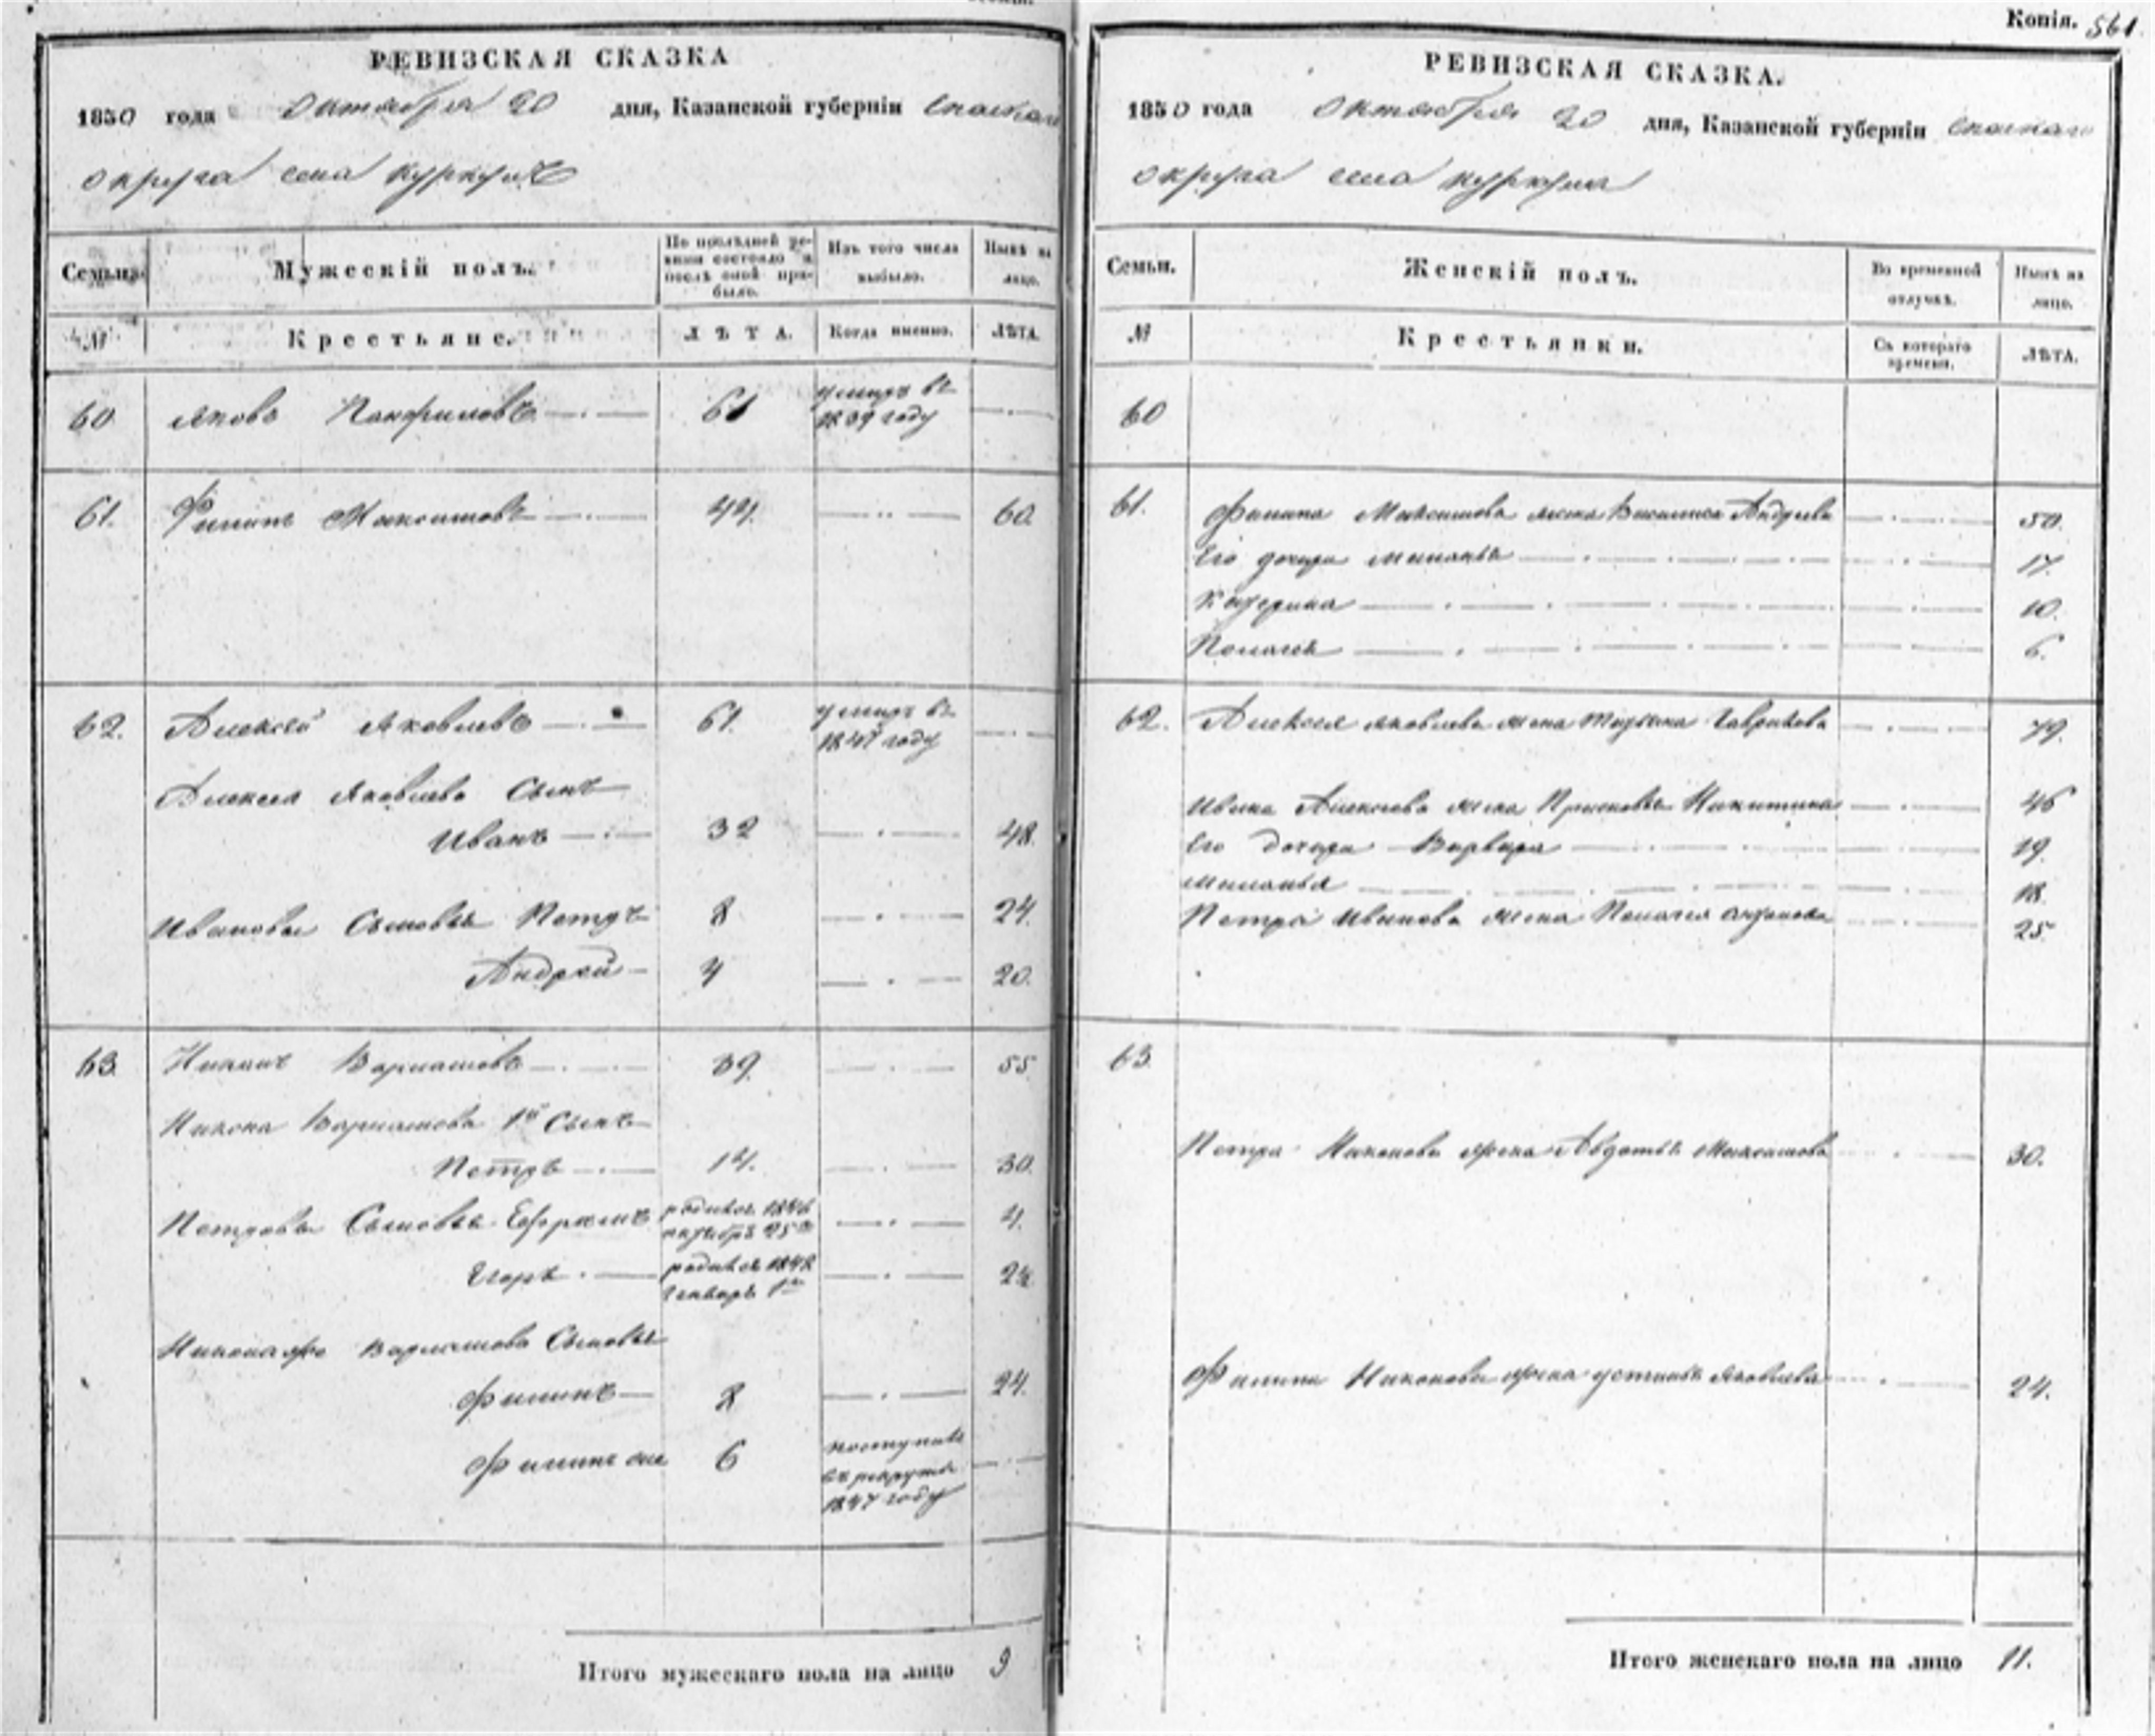 Копія. 561
РЕВИЗСКАЯ СКАЗКА
1850 года Октября 20 дня, Казанской губерніи Спаскаго
округа села Куркуль
Семьи. Мужескій полъ. По послѣдней ревизіи состояло и послѣ оной прибыло. Изъ того числа выбыло. Нынѣ на лицо.
№ Крестьяне. ЛѢТА. Когда именно. ЛѢТА.
60 Яковъ Панфиловъ 61 умеръ въ 1839 году
61. Филипъ Максимовъ 44. 60.
62. Алексей Яковлевъ 61. умеръ въ 1847 году
Алексея Яковлева Сынъ
Иванъ 32 48.
Ивановы Сыновья Петръ 8 24.
Андрей 4 20.
63. Никонъ Варламовъ 39. 55
Никона Варламова 1й Сынъ
Петръ 14. 30.
Петровы Сыновья Ефремъ родился 1846 октября 25го 4.
Егоръ родился 1848 Генваря 1го
Никона Варламова Сыновья
Филипъ 8 24.
Филипъ же 6 поступилъ въ рекруты 1847 году
Итого мужескаго пола на лицо 9
РЕВИЗСКАЯ СКАЗКА.
1850 года Октября 20 дня, Казанской губерніи Спаскаго
округа села Куркуля
Семьи. Женскій полъ. Во временной отлучкѣ. Нынѣ на лицо.
№ Крестьянки. Съ котораго времени. ЛѢТА.
60
61. Филипа Максимова жена Василиса Андреева 50.
Его дочери Миланья 17.
Катерина 10.
Полагея 6.
62. Алексея Яковлева жена Гаврилова 79.
Ивана Алексеева жена Прасковья Никитина 46
Его дочери Варвара 19.
Миланья 18.
Петра Иванова жена Полагея 25.
63.
Петра Никонова жена Авдотья Максимова 30.
Филипа Никонова жена Устинья Яковлева 24.
Итого женскаго пола на лицо 11.